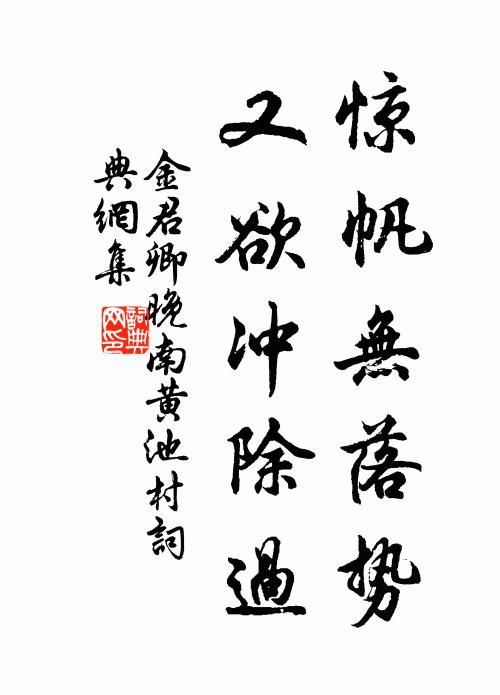 惊帆無落势
又欲冲除過
金君卿晚南黄池村詞
典網集
詞典网印